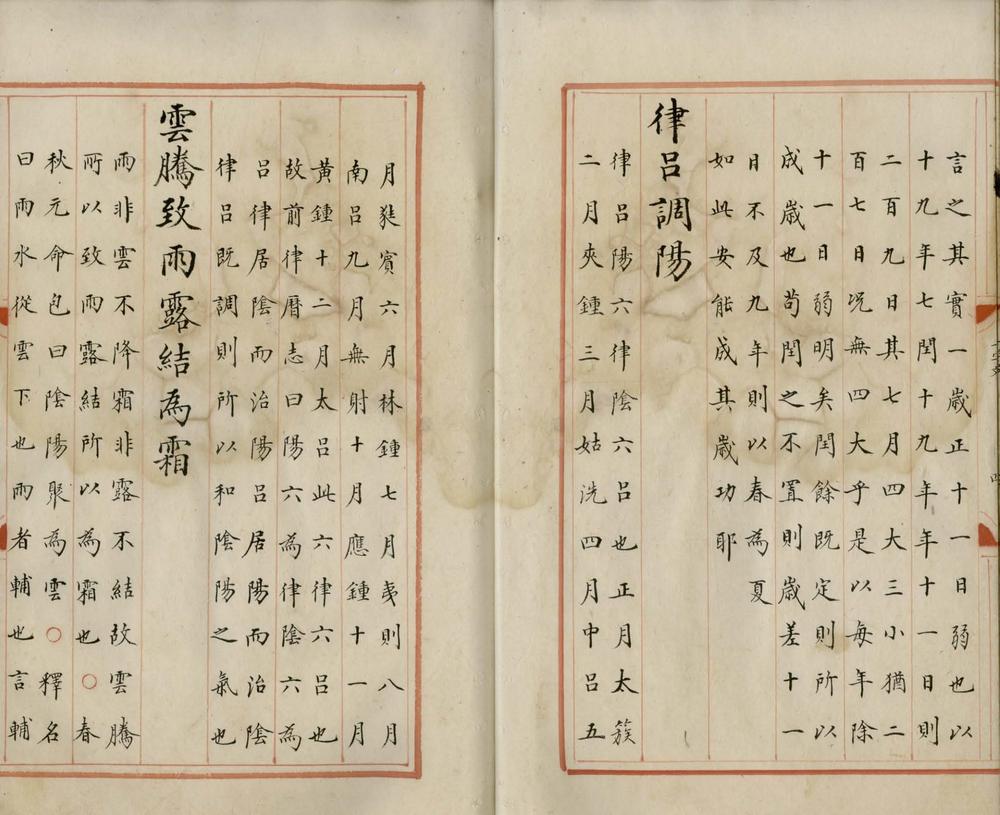 言之其實一歲正十一日弱也以
十九年七閏十九年年十一日則
二百九日其七月四大三小猶二
百七日况無四大乎是以每年除
十一日弱明矣閏餘既定則所以
成歲也苟閏之不置則歲差十一
日不及九年則以春為夏
如此安能成其歲功耶
律呂調陽
律呂陽六律陰六呂也正月太簇
二月夾鍾三月姑洗四月中呂五
月蕤賓六月林鍾七月夷則八月
南呂九月無射十月應鍾十一月
黃鍾十二月太呂此六律六呂也
故前律曆志曰陽六為律陰六為
呂律居陰而治陽呂居陽而治陰
律呂既調則所以和陰陽之氣也
雲騰致雨露結為霜
雨非雲不降霜非露不結故雲騰
所以致雨露結所以為霜也○春
秋元命包曰陰陽聚為雲○釋名
曰雨水從雲下也雨者輔也言輔